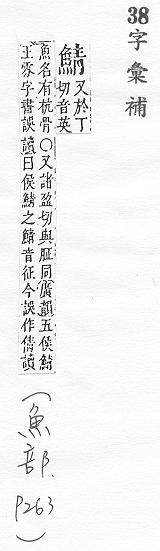 38字彙補
鯖
又於丁
切音英
魚名有枕骨〇又諸盈切與䐿同廣韻五侯鯖
王雰字書誤讀曰侯鯖之鯖音征今誤作倩讀
(魚部.
P263
)